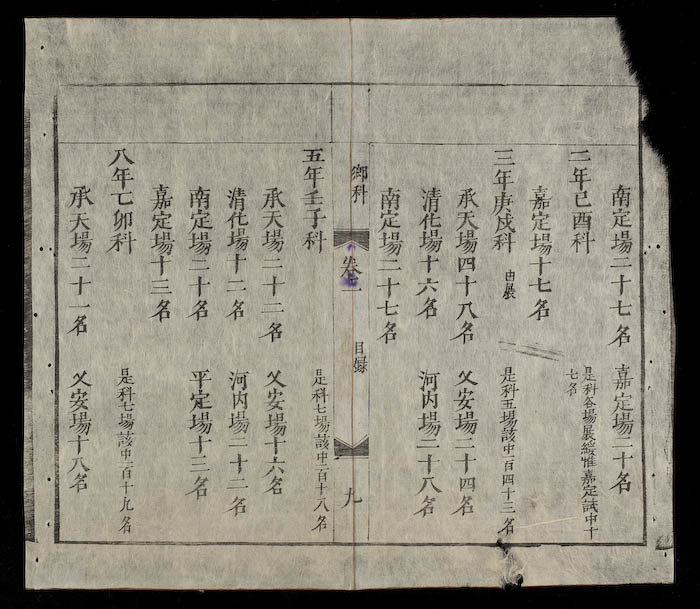 南定場二十七名 嘉定場二十名
二年己酉科 是科各場展緩惟嘉定試中十
七名
嘉定場十七名
三年庚戌科 由展 是科五場該中一百四十三名
承天場四十八名 乂安場二十四名
清化場十六名 河内場二十八名
南定場二十七名
鄉科 卷 目録 九
五年壬子科 是科七場該中一百十八名
承天場二十二名 乂安場十六名
清化場十二名 河内場二十二名
南定場二十名 平定場十三名
嘉定場十三名
八年乙卯科 是科七場該中一百十九名
承天場二十一名 乂安場十八名